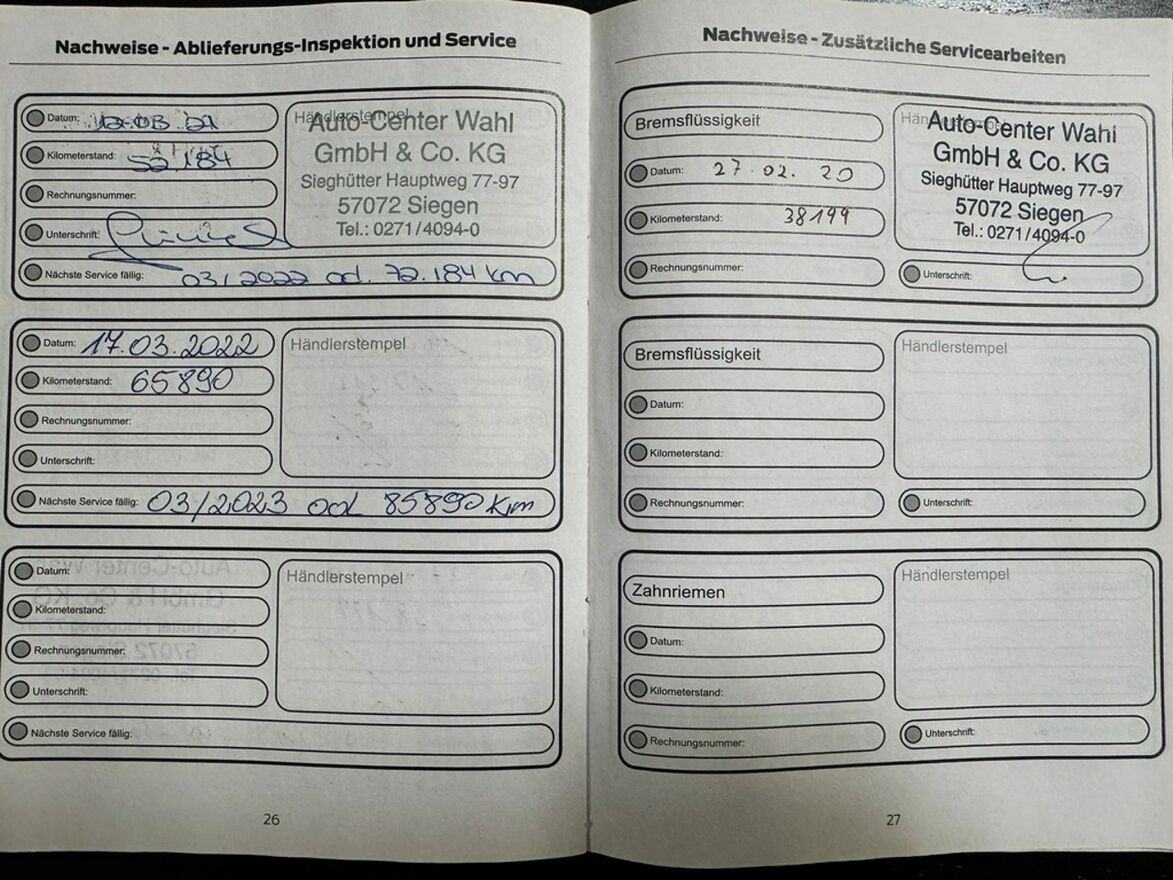 Nachweise - Ablieferungs-Inspektion und Service
Datum: 12.03.21
Kilometerstand: 52.184
Rechnungsnummer:
Unterschrift:
Nächste Service fällig: 03/2022 od. 72.184 km
Händlerstempel
Auto-Center Wahl
GmbH & Co. KG
Sieghütter Hauptweg 77-97
57072 Siegen
Tel.: 0271/4094-0
Datum: 17.03.2022
Kilometerstand: 65890
Rechnungsnummer:
Unterschrift:
Nächste Service fällig: 03/2023 od 85890 km
Händlerstempel
Datum:
Kilometerstand:
Rechnungsnummer:
Unterschrift:
Nächste Service fällig:
Händlerstempel
26
Nachweise - Zusätzliche Servicearbeiten
Bremsflüssigkeit
Datum: 27.02.20
Kilometerstand: 38199
Rechnungsnummer:
Auto-Center Wahl
GmbH & Co. KG
Sieghütter Hauptweg 77-97
57072 Siegen
Tel.: 0271/4094-0
Unterschrift:
Bremsflüssigkeit
Datum:
Kilometerstand:
Rechnungsnummer:
Händlerstempel
Unterschrift:
Zahnriemen
Datum:
Kilometerstand:
Rechnungsnummer:
Händlerstempel
Unterschrift:
27